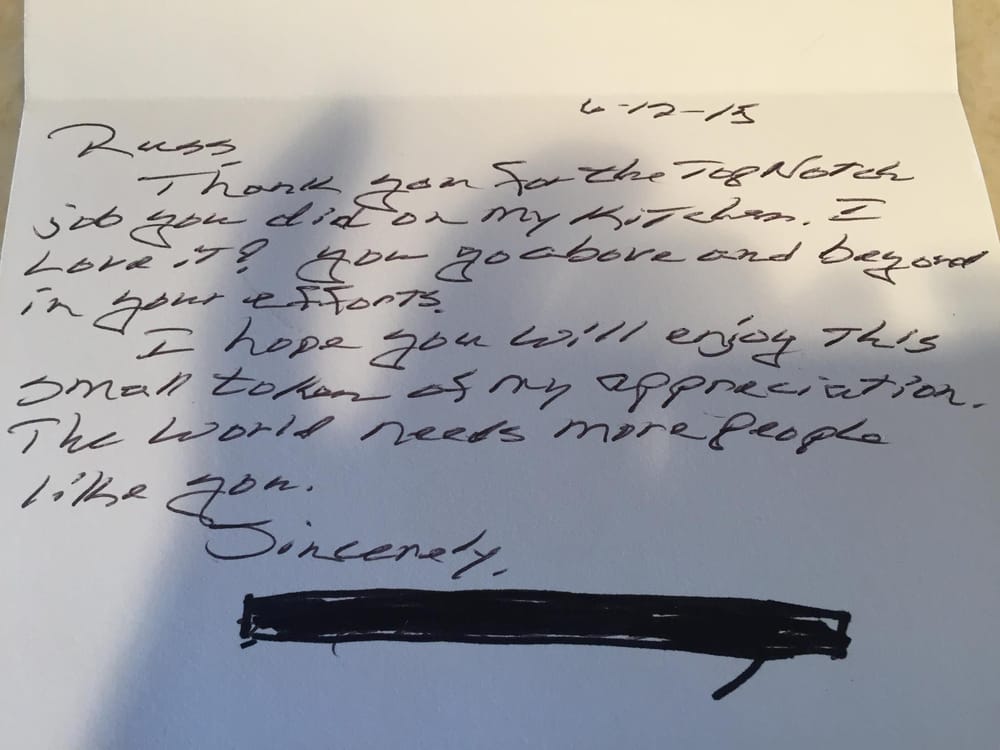 6-12-15
Russ,
Thank you for the Top Notch
job you did on my Kitchen. I
Love it! you go above and beyond
in your efforts.
I hope you will enjoy This
small token of my appreciation.
The World needs more people
like you.
Sincerely,